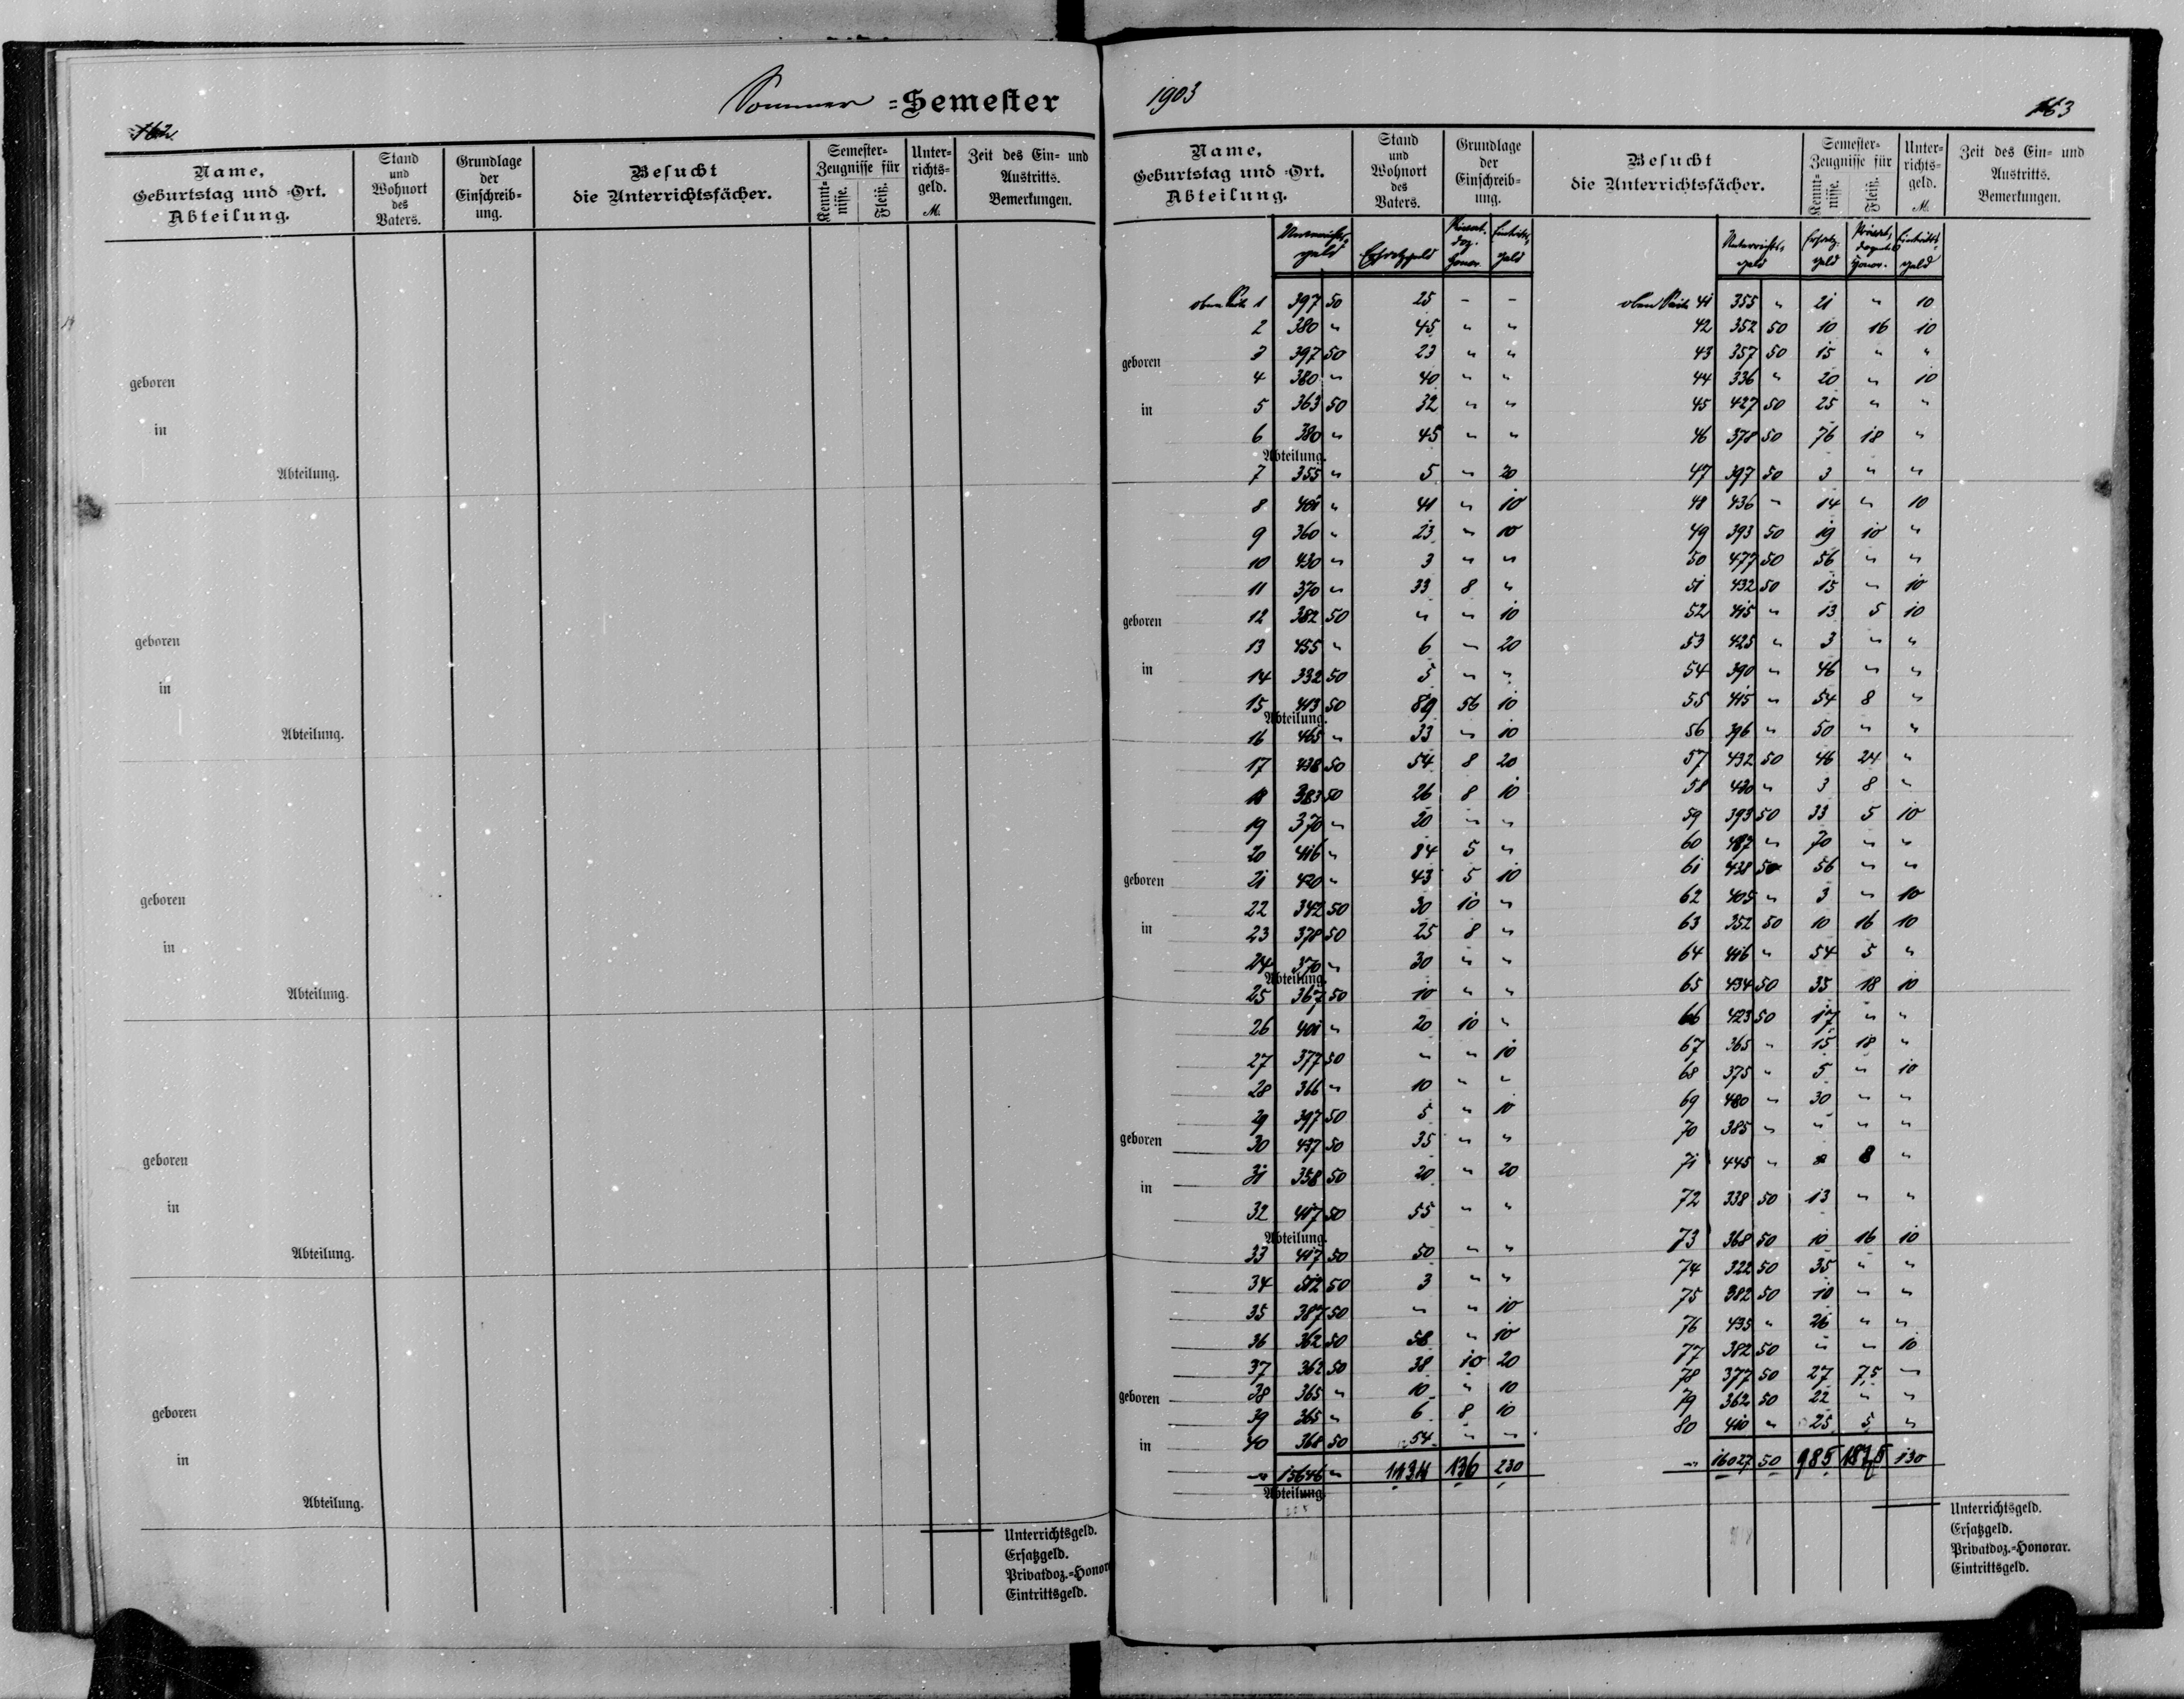 Sommer =Semester
162
Name, Geburtstag und =Ort. Abteilung.
Stand und Wohnort des Vaters.
Grundlage der Einschreib= ung.
Besucht die Unterrichtsfächer.
Semester= Zeugnisse für
Kennt= nisse.
Fleiß.
Unter= richts= geld. M.
Zeit des Ein= und Austritts. Bemerkungen.
geboren
in
Abteilung.
geboren
in
Abteilung.
geboren
in
Abteilung.
geboren
in
Abteilung.
geboren
in
Abteilung.
Unterrichtsgeld.
Ersatzgeld.
Privatdoz.=Honorar
Eintrittsgeld.
1903
163
Name, Geburtstag und =Ort. Abteilung.
Stand und Wohnort des Vaters.
Grundlage der Einschreib= ung.
Besucht die Unterrichtsfächer.
Semester= Zeugnisse für
Kennt= nisse.
Fleiß.
Unter= richts= geld. M.
Zeit des Ein= und Austritts. Bemerkungen.
Unterrichts= geld
Ersatzgeld
Privat. doz. honor.
Eintritts= geld
oben Seite 1 397 50 25 - -
2 380 " 45 " "
3 397 50 23 " "
geboren
4 380 " 40 " "
in
5 363 50 32 " "
6 380 " 45 " "
Abteilung.
7 355 " 5 " 20
8 401 " 41 " 10
9 360 " 23 " 10
10 430 " 3 " "
11 370 " 33 8 "
geboren
12 382 50 " " 10
13 455 " 6 " 20
in
14 332 50 5 " "
15 413 50 89 56 10
Abteilung.
16 465 " 33 " 10
17 438 50 54 8 20
18 383 50 26 8 10
19 370 " 20 " "
20 416 " 84 5 "
geboren
21 420 " 43 5 10
22 342 50 30 10 "
in
23 378 50 25 8 "
24 370 " 30 " "
Abteilung.
25 367 50 10 " "
26 401 " 20 10 "
27 377 50 " " 10
28 366 " 10 " "
29 397 50 5 " 10
geboren
30 437 50 35 " "
31 358 50 20 " 20
in
32 417 50 55 " "
Abteilung.
33 417 50 50 " "
34 512 50 3 " "
35 387 50 " " 10
36 362 50 58 " 10
37 362 50 38 10 20
geboren
38 365 " 10 " 10
39 365 " 6 8 10
in
40 368 50 54 " "
15646 " 1134 136 230
Abteilung.
Unterrichts= geld
Ersatz. geld
Privat, dozent honor.
Eintritts= geld
oben Seite 41 355 " 21 " 10
42 352 50 10 16 10
43 357 50 15 " "
44 336 " 20 " 10
45 427 50 25 " "
46 378 50 76 18 "
47 397 50 3 " "
48 436 " 14 " 10
49 393 50 19 10 "
50 477 50 56 " "
51 432 50 15 " 10
52 415 " 13 5 10
53 425 " 3 " "
54 390 " 46 " "
55 415 " 54 8 "
56 396 " 50 " "
57 432 50 46 24 "
58 430 " 3 8 "
59 393 50 33 5 10
60 487 " 70 " "
61 428 50 56 " "
62 405 " 3 " 10
63 352 50 10 16 10
64 416 " 54 5 "
65 434 50 35 18 10
66 423 50 17 " "
67 365 " 15 18 "
68 375 " 5 " 10
69 480 " 30 " "
70 385 " " " "
71 445 " 8 "
72 338 50 13 " "
73 368 50 10 16 10
74 322 50 35 " "
75 382 50 10 " "
76 435 " 26 " "
77 382 50 " " 10
78 377 50 27 7,5 "
79 362 50 22 " "
80 410 " 25 5 "
16027 50 985 187,5 130
Unterrichtsgeld.
Ersatzgeld.
Privatdoz.=Honorar.
Eintrittsgeld.